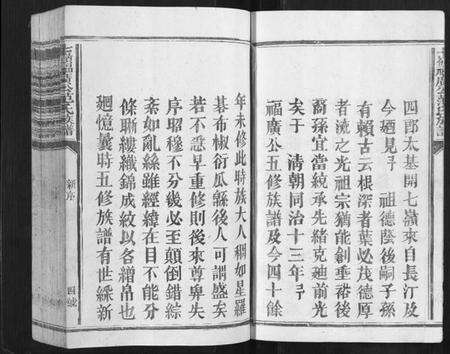 四郎太基開七嶺來自長汀及
今廻見千祖德蔭後嗣子孫
有賴古云根深者葉必茂德厚
者流之光祖宗猶能創垂裕後
裔孫宜當繞承先緒克廸前光
矣于 清朝同治十三年
福廣公五修族譜及今四十餘
年未修此時族大人稠如星羅
碁布椒衍瓜緜後人可謂盛矣
若不趂早重修則後來尊卑失
序昭穆不分幾必至顛倒錯綜
紊如亂絲雖經緯在目不能分
條晰縷織錦成紋以各繒帛也
廻憶曩時五修族譜有世綵新
新序
四號